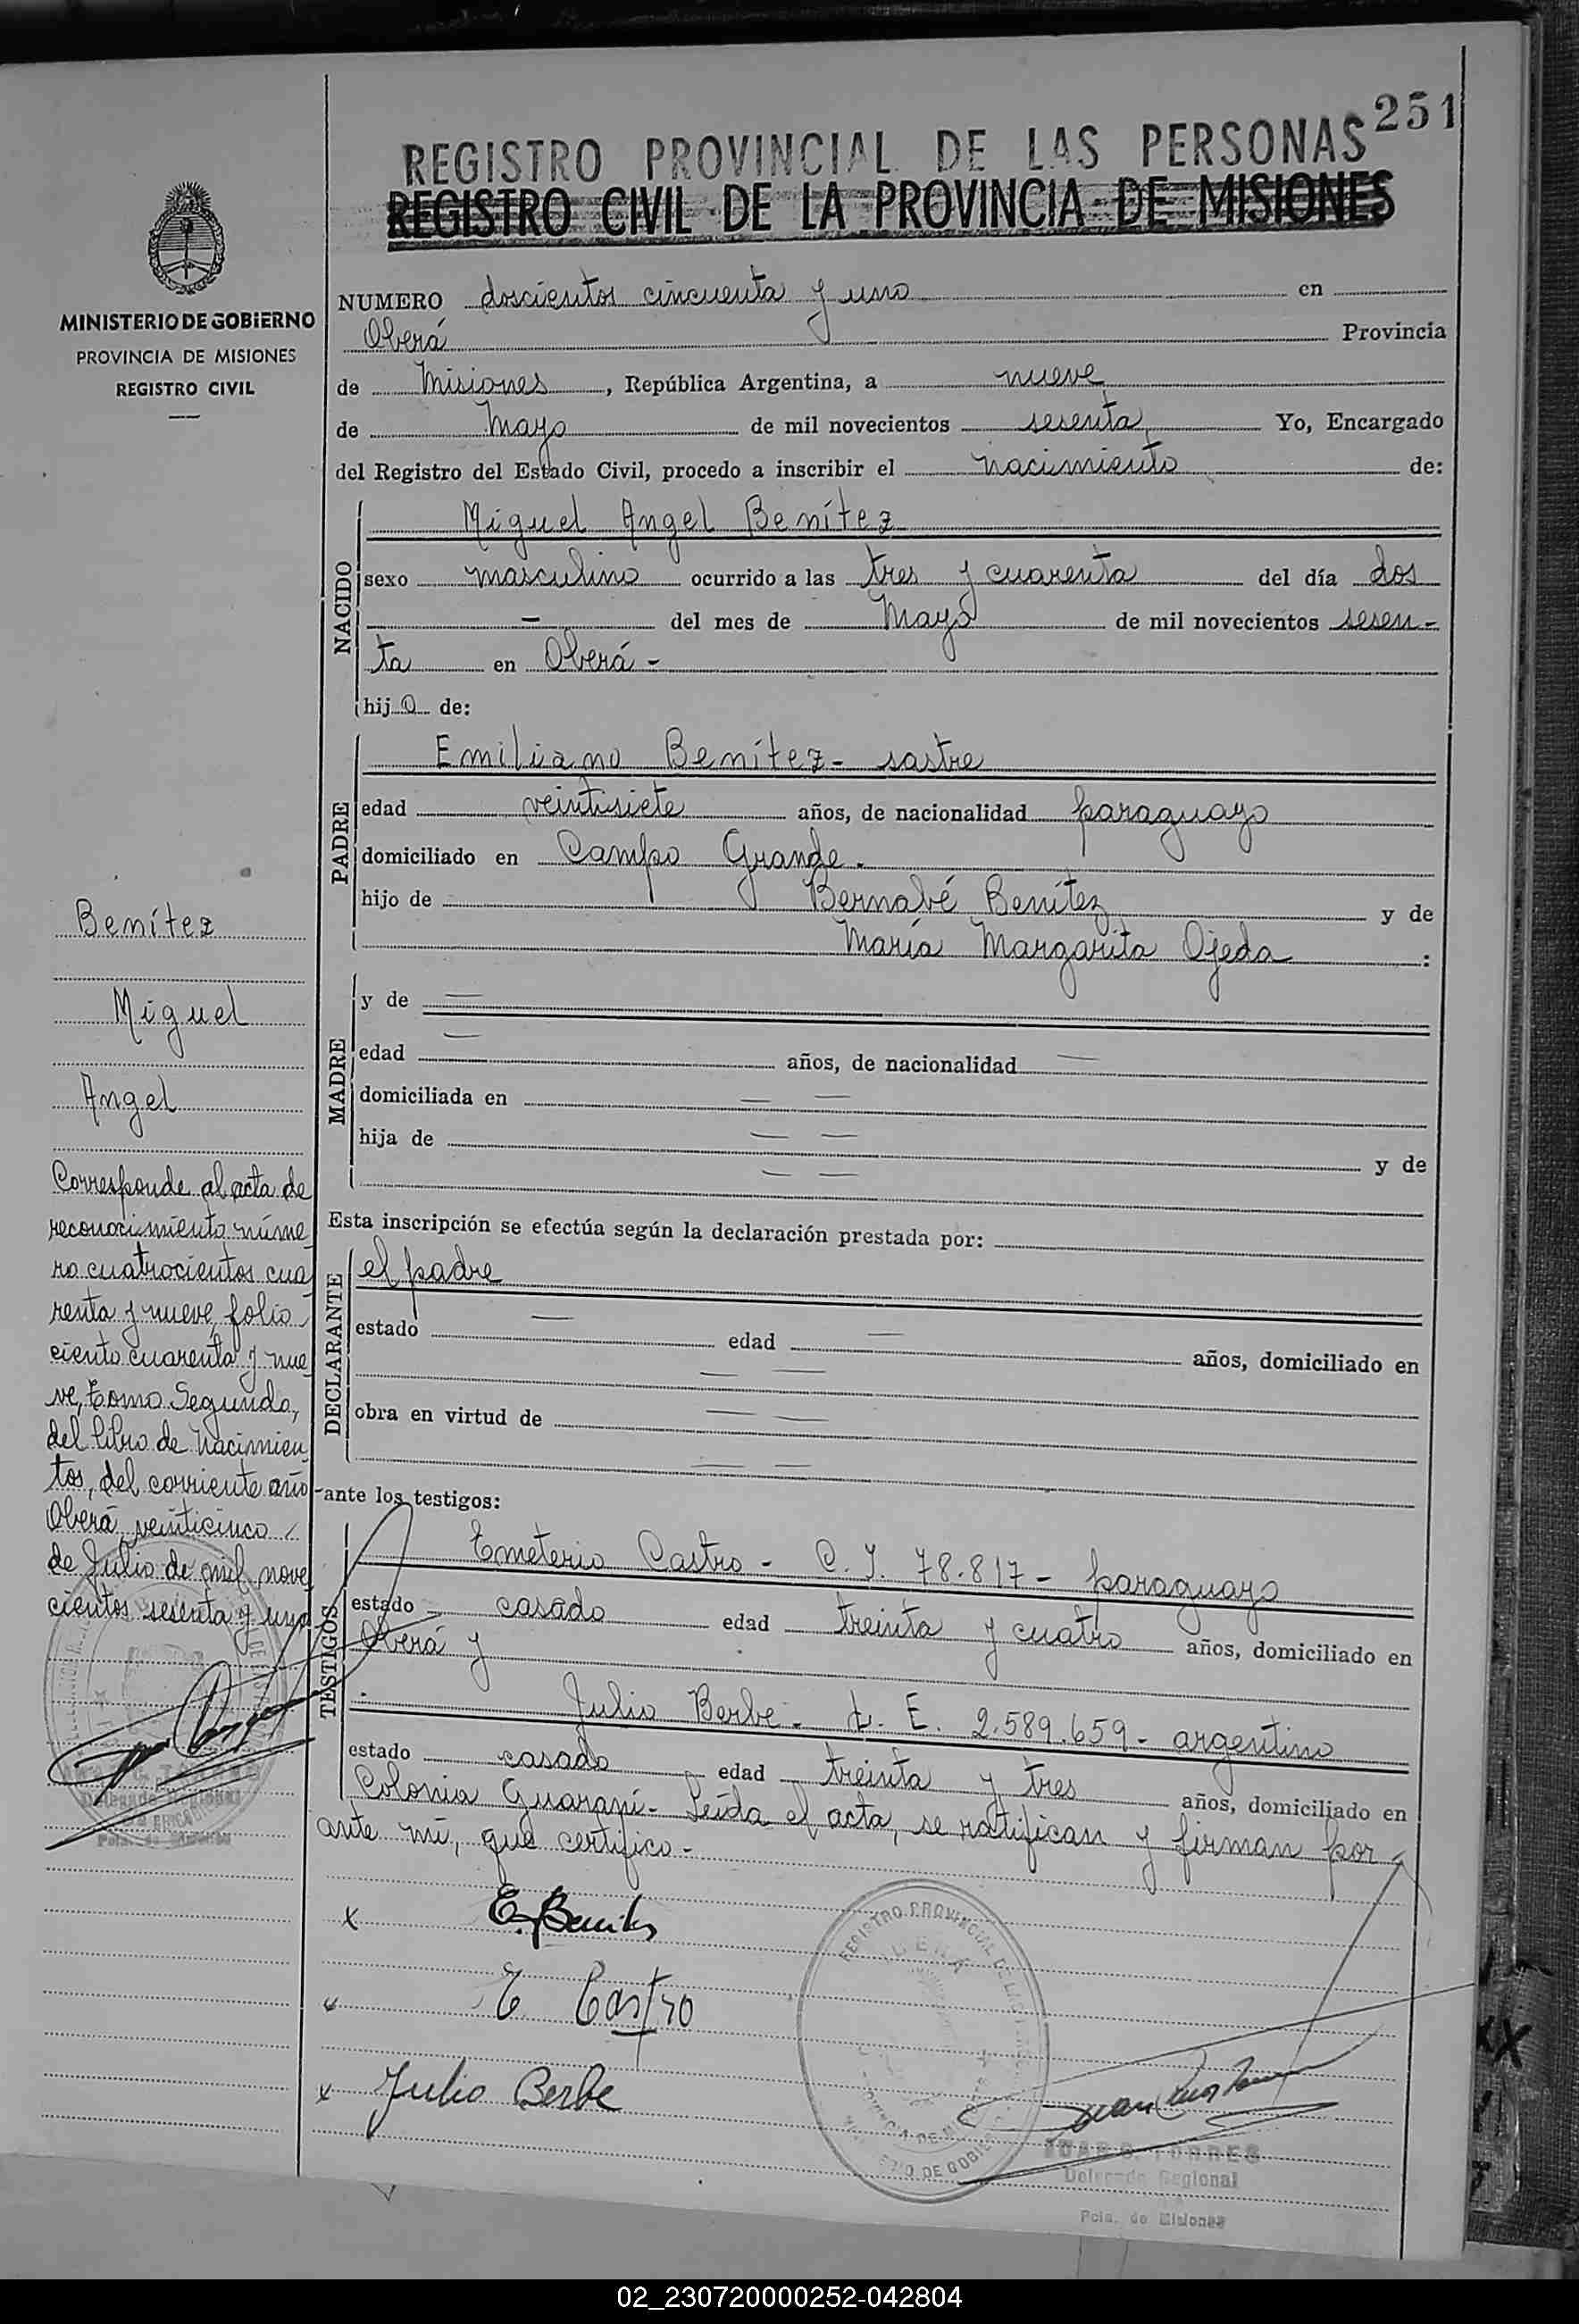 251
REGISTRO PROVINCIAL DE LAS PERSONAS
REGISTRO CIVIL DE LA PROVINCIA DE MISIONES
MINISTERIO DE GOBIERNO
PROVINCIA DE MISIONES
REGISTRO CIVIL
NUMERO doscientos cincuenta y uno en
Oberá Provincia
de Misiones, República Argentina, a nueve
de Mayo de mil novecientos sesenta Yo, Encargado
del Registro del Estado Civil, procedo a inscribir el nacimiento de:
NACIDO
Miguel Angel Benítez
sexo masculino ocurrido a las tres y cuarenta del día dos
— del mes de Mayo de mil novecientos sesen-
ta en Oberá -
hijo de:
PADRE
Emiliano Benítez - sastre
edad veintisiete años, de nacionalidad paraguayo
domiciliado en Campo Grande.
hijo de Bernabé Benítez y de
María Margarita Ojeda :
MADRE
y de —
edad — años, de nacionalidad —
domiciliada en — —
hija de — — y de
— —
Esta inscripción se efectúa según la declaración prestada por:
DECLARANTE
el padre
estado — edad — años, domiciliado en
— —
obra en virtud de — —
— —
ante los testigos:
TESTIGOS
Emeterio Castro - C. I. 78.817 - paraguayo
estado casado edad treinta y cuatro años, domiciliado en
Oberá y
Julio Berbe - L. E. 2.589.659 - argentino
estado casado edad treinta y tres años, domiciliado en
Colonia Guaraní - Leída el acta, se ratifican y firman por
ante mí, que certifico -
x E. Benitez
x E Castro
x Julio Berbe
REGISTRO PROVINCIAL DE LAS
OBERA
JUAN C. TORRES
Delegado Regional
Pcia. de Misiones
Benítez
Miguel
Angel
Corresponde al acta de
reconocimiento núme-
ro cuatrocientos cua
renta y nueve, folio
ciento cuarenta y nue
ve, Tomo Segundo,
del libro de Nacimien
tos, del corriente año-
Oberá, veinticinco
de Julio de mil nove
cientos sesenta y uno
Delegado Regional
Pcia. de Misiones
02_230720000252-042804